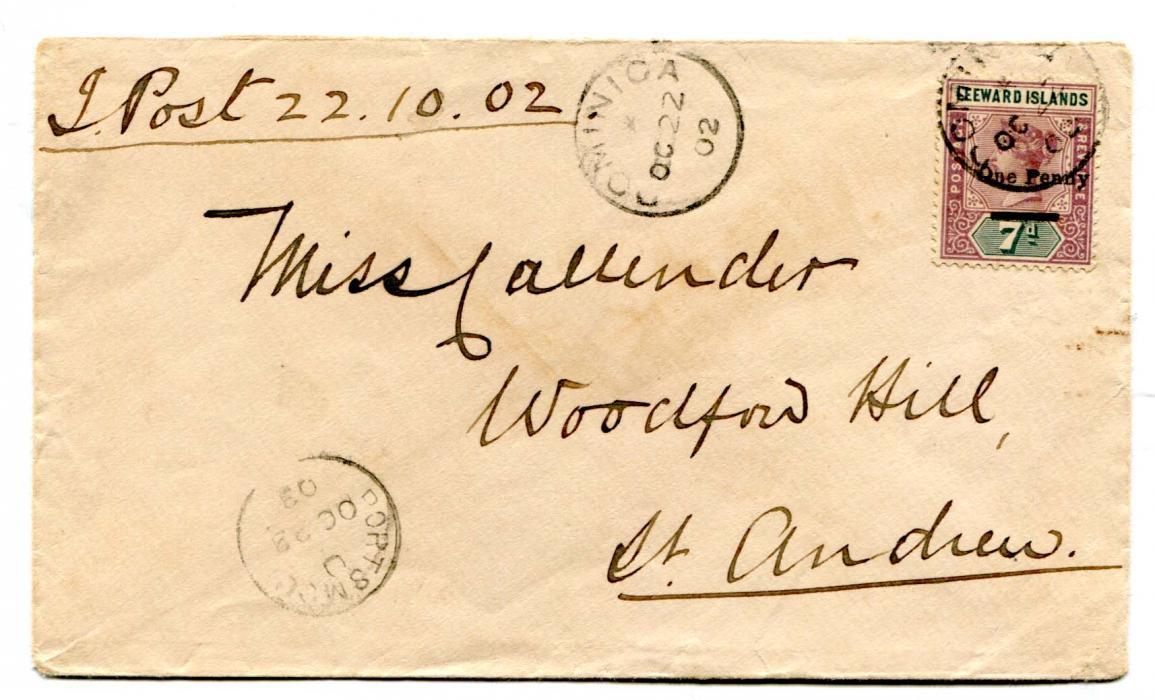 I. Post 22.10.02
DOMINICA
OC 22
02
LEEWARD ISLANDS
One Penny
7d
Miss Callender
Woodford Hill,
St. Andrew.
PORTSMO
OC 22